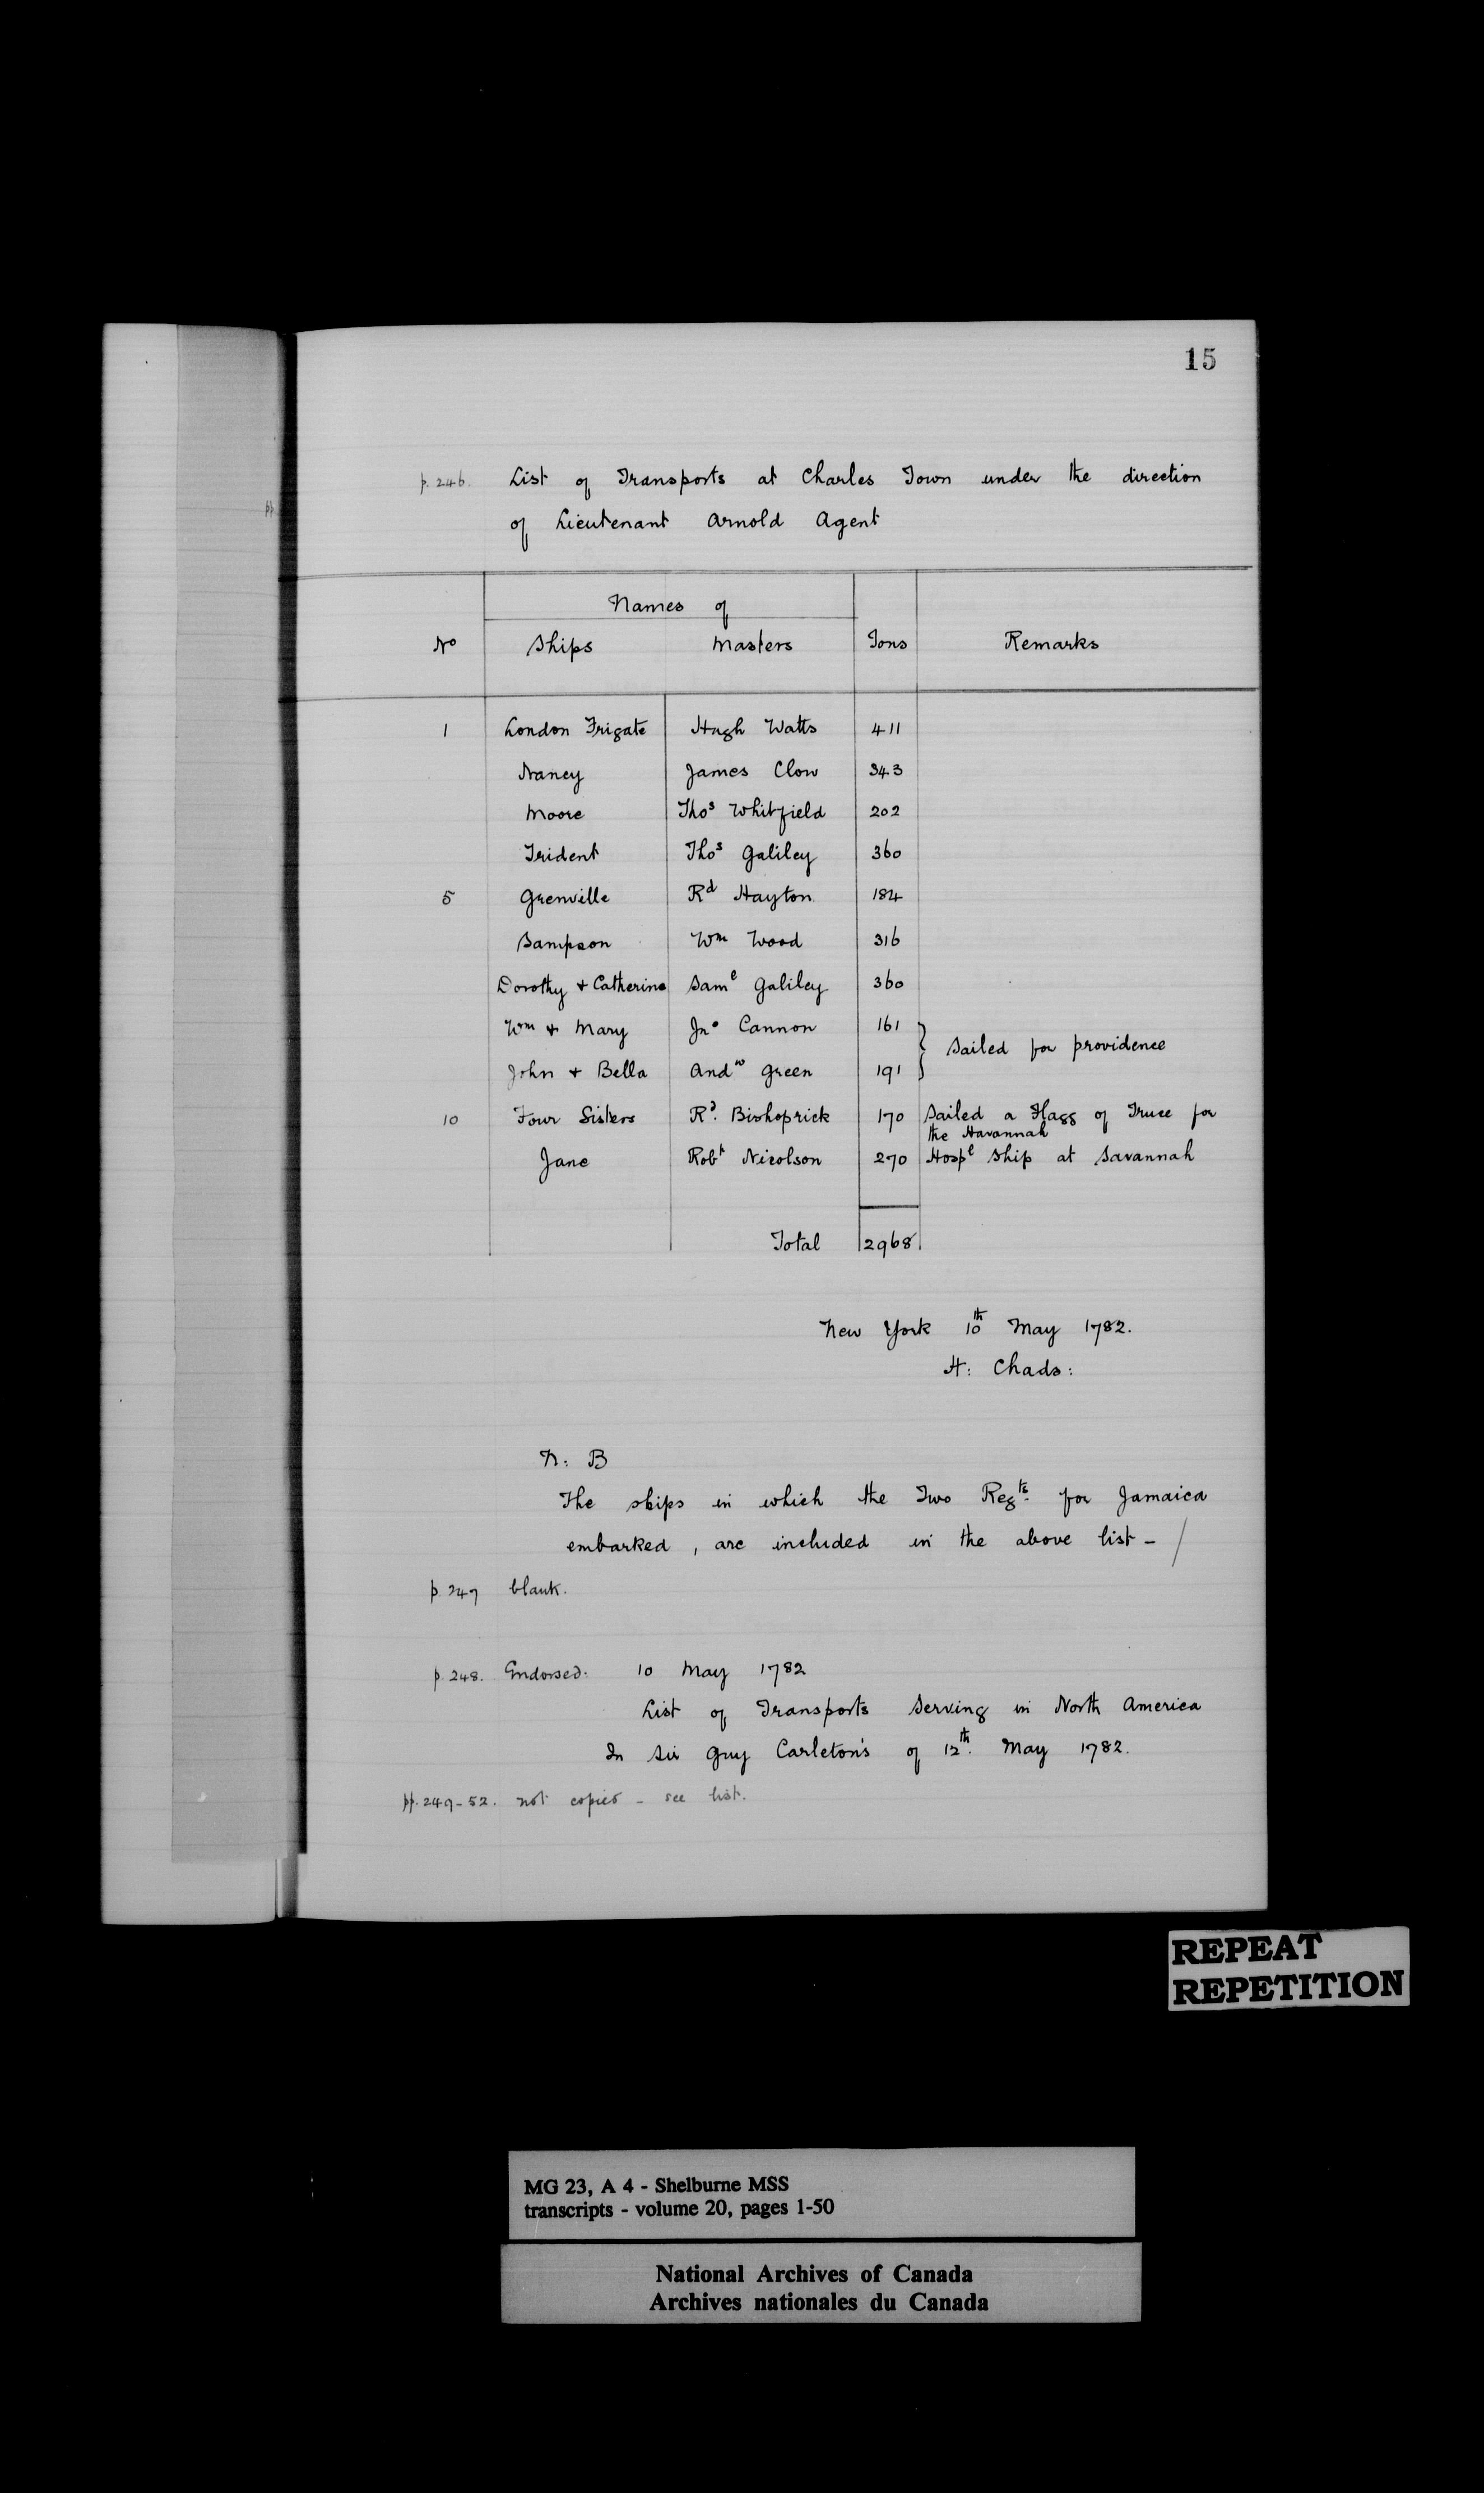 15
p. 246. List of Transports at Charles Town under the direction
of Lieutenant Arnold Agent
Names of
No Ships Masters Tons Remarks
1 London Frigate Hugh Watts 411
Nancy James Clow 343
Moore Thos Whitfield 202
Trident Thos Galiley 360
5 Grenville Rd Hayton 184
Sampson Wm Wood 316
Dorothy + Catherine Saml Galiley 360
Wm + Mary Jno Cannon 161
Sailed for providence
John + Bella Andw Green 191
10 Four Sisters Rd. Bishoprick 170 Sailed a Flagg of Truce for
the Havannah
Jane Robt Nicolson 270 Hospl Ship at Savannah
Total 2968
New York 10th May 1782.
H: Chads:
N: B
The ships in which the Two Regts. for Jamaica
embarked, are included in the above list - /
p. 247 blank.
p. 248. Endorsed. 10 May 1782
List of Transports Serving in North America
In Sir Guy Carleton's of 12th. May 1782.
pp. 249-52. not copied - see list.
pp.
REPEAT
REPETITION
MG 23, A 4 - Shelburne MSS
transcripts - volume 20, pages 1-50
National Archives of Canada
Archives nationales du Canada